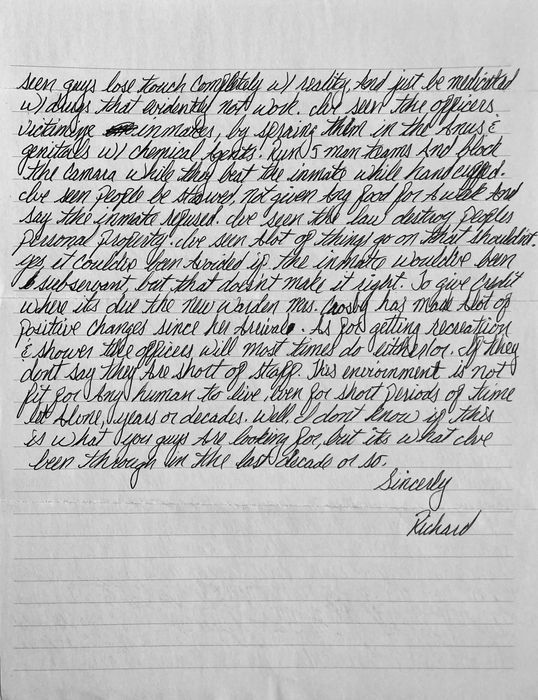 seen guys lose touch completely w/ reality, And just be medicated
w/ drugs that evidently not work. I've seen the officers
victimize inmates, by spraying them in the Anus &
genitals w/ chemical Agents. Run 5 man teams And block
the Camara while they beat the inmate while handcuffed.
I've seen people be starved, not given Any food for A week And
say the inmate refused. I've seen the law destroy peoples
personal property. I've seen Alot of things go on that shouldn't.
yes it could've been Avoided if the inmate would've been
subservant, but that doesn't make it right. To give Credit
where its due the new warden Mrs. Crosby has made Alot of
positive changes since her Arrival. As for getting recreation
& shower the officers will most times do either/or. If they
dont say they Are short of staff. This environment is not
fit for Any human to live, even for short periods of time
let Alone, years or decades. Well, I don't know if this
is what you guys Are looking for, but its what I've
been through in the last decade or so.
Sincerly
Richard